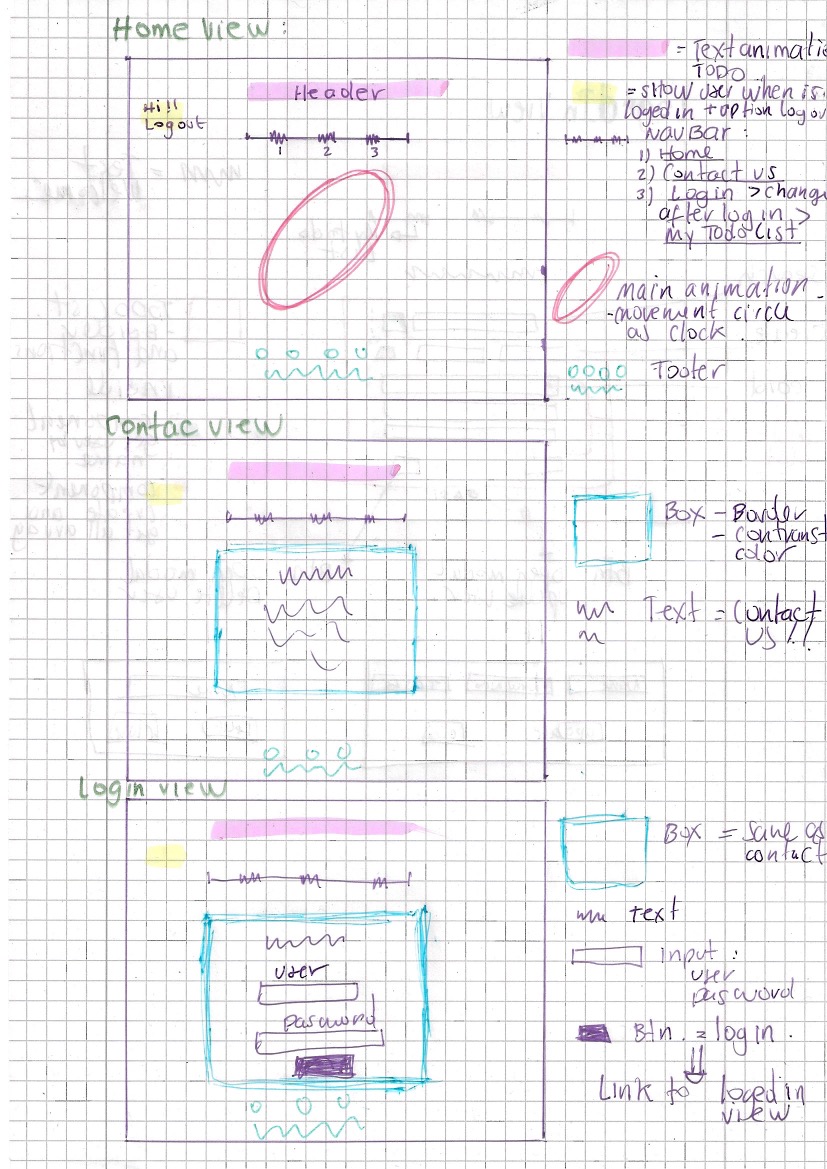 Home view :
Header
Hi!!
Logout
1 2 3
= Text animatio
TODO
= show user when is
loged in + option logou
NavBar :
1) Home
2) Contact us
3) Login > change
after log in >
my Todo List
main animation -
- movement circle
as clock.
Footer
Contac view
Box - Border
- contranst
color
Text = Contact
us!!
Login view
user
pasword
Box = same as
contact
text
input :
user
pasword
Btn. = login.
Link to loged in
view